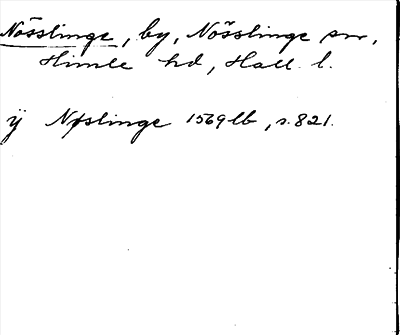 Nösslinge, by, Nösslinge sn,
Himle hd, Hall. l.
ÿ Nøslinge 1569 lb, s. 821.